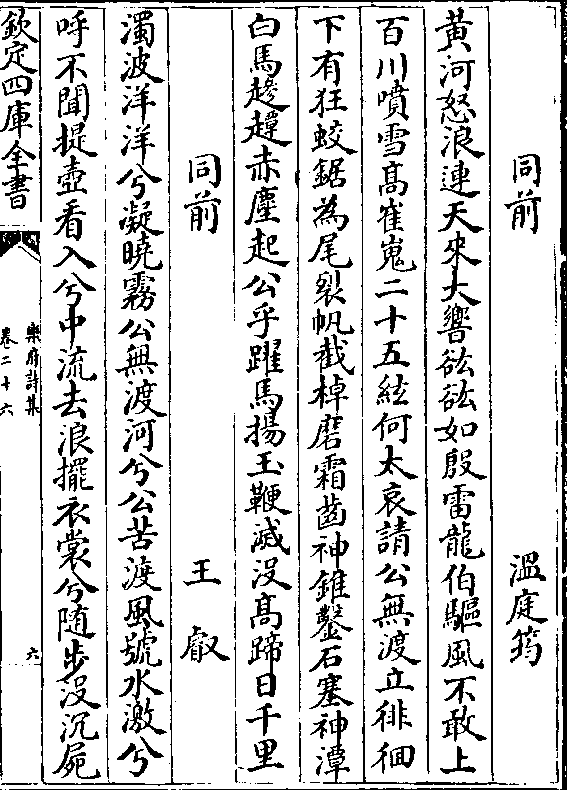 同前 溫庭筠
黃河怒浪連天來大響谹谹如殷雷龍伯驅風不敢上
百川噴雪髙崔嵬二十五絃何太哀請公無渡立徘徊
下有狂蛟鋸為尾裂帆截棹磨霜齒神錐鑿石塞神潭
白馬䟃䟃赤塵起公乎躍馬揚玉鞭滅没髙蹄日千里
同前 王叡
濁波洋洋兮凝曉霧公無渡河兮公苦渡風號水激兮
呼不聞提壺看入兮中流去浪擺衣裳兮随步没沉屍
欽定四庫全書
樂府詩集
卷二十六
六